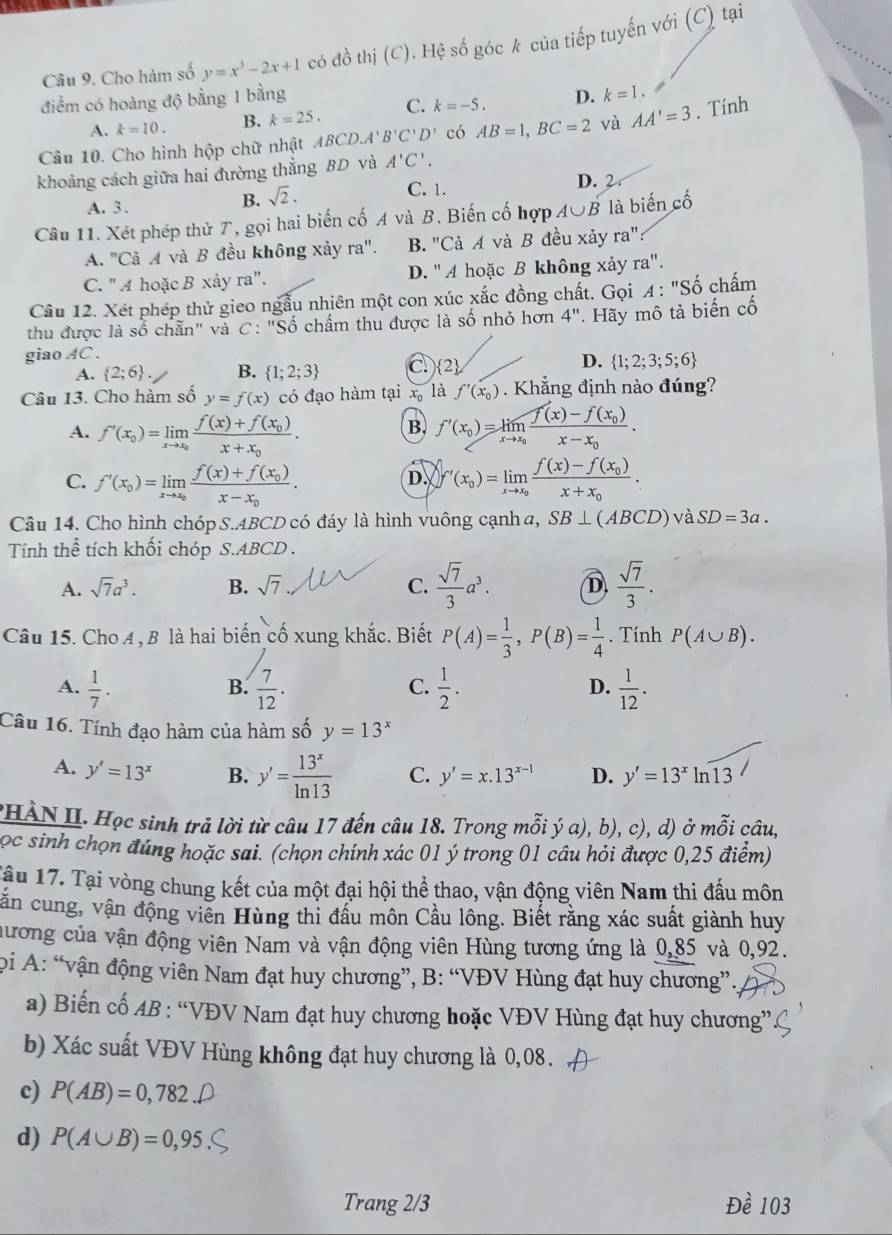 Câu 9. Cho hàm số y = x³ − 2x + 1 có đồ thị (C). Hệ số góc k của tiếp tuyến với (C) tại
điểm có hoành độ bằng 1 bằng
A. k = 10. B. k = 25. C. k = −5. D. k = 1.
Câu 10. Cho hình hộp chữ nhật ABCD.A'B'C'D' có AB = 1, BC = 2 và AA' = 3. Tính
khoảng cách giữa hai đường thẳng BD và A'C'.
A. 3. B. √2. C. 1. D. 2.
Câu 11. Xét phép thử T, gọi hai biến cố A và B. Biến cố hợp A∪B là biến cố
A. "Cả A và B đều không xảy ra". B. "Cả A và B đều xảy ra".
C. "A hoặc B xảy ra". D. "A hoặc B không xảy ra".
Câu 12. Xét phép thử gieo ngẫu nhiên một con xúc xắc đồng chất. Gọi A: "Số chấm
thu được là số chẵn" và C: "Số chấm thu được là số nhỏ hơn 4". Hãy mô tả biến cố
giao AC.
A. {2;6}. B. {1;2;3} C. {2} D. {1;2;3;5;6}
Câu 13. Cho hàm số y = f(x) có đạo hàm tại x₀ là f'(x₀). Khẳng định nào đúng?
A. f'(x₀) = lim_{x→x₀} (f(x)+f(x₀))/(x+x₀). B. f'(x₀) = lim_{x→x₀} (f(x)−f(x₀))/(x−x₀).
C. f'(x₀) = lim_{x→x₀} (f(x)+f(x₀))/(x−x₀). D. f'(x₀) = lim_{x→x₀} (f(x)−f(x₀))/(x+x₀).
Câu 14. Cho hình chóp S.ABCD có đáy là hình vuông cạnh a, SB ⊥ (ABCD) và SD = 3a.
Tính thể tích khối chóp S.ABCD.
A. √7a³. B. √7. C. √7/3 a³. D. √7/3.
Câu 15. Cho A, B là hai biến cố xung khắc. Biết P(A) = 1/3, P(B) = 1/4. Tính P(A∪B).
A. 1/7. B. 7/12. C. 1/2. D. 1/12.
Câu 16. Tính đạo hàm của hàm số y = 13ˣ
A. y' = 13ˣ B. y' = 13ˣ/ln13 C. y' = x.13ˣ⁻¹ D. y' = 13ˣ ln13
PHẦN II. Học sinh trả lời từ câu 17 đến câu 18. Trong mỗi ý a), b), c), d) ở mỗi câu,
ọc sinh chọn đúng hoặc sai. (chọn chính xác 01 ý trong 01 câu hỏi được 0,25 điểm)
Câu 17. Tại vòng chung kết của một đại hội thể thao, vận động viên Nam thi đấu môn
ắn cung, vận động viên Hùng thi đấu môn Cầu lông. Biết rằng xác suất giành huy
hương của vận động viên Nam và vận động viên Hùng tương ứng là 0,85 và 0,92.
ọi A: “vận động viên Nam đạt huy chương”, B: “VĐV Hùng đạt huy chương”.
a) Biến cố AB: “VĐV Nam đạt huy chương hoặc VĐV Hùng đạt huy chương”. S
b) Xác suất VĐV Hùng không đạt huy chương là 0,08. Đ
c) P(AB) = 0,782. Đ
d) P(A∪B) = 0,95. S
Trang 2/3 Đề 103